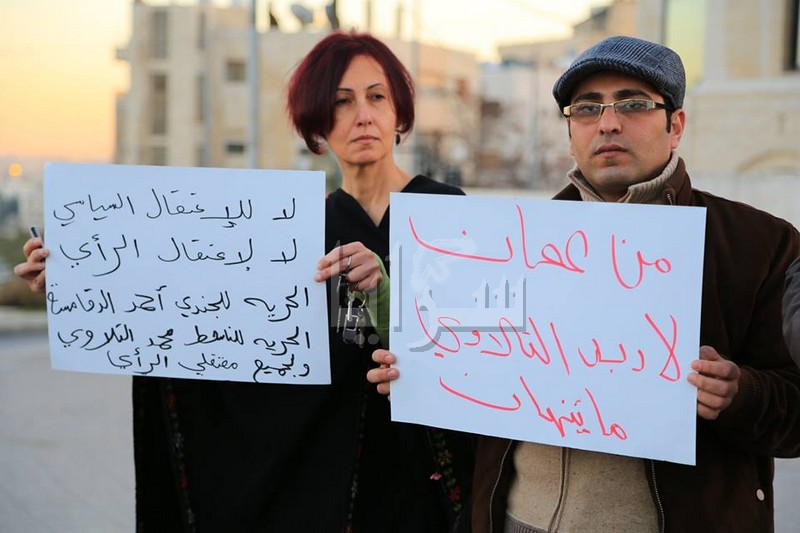 لا للإعتقال السياسي
لا لإعتقال الرأي
الحريه للجندي أحمد الدقامسة
الحريه للناشط محمد التلاوي
ولجميع معتقلي الرأي
من عمان
لاربد التلاوي
ما بنهان